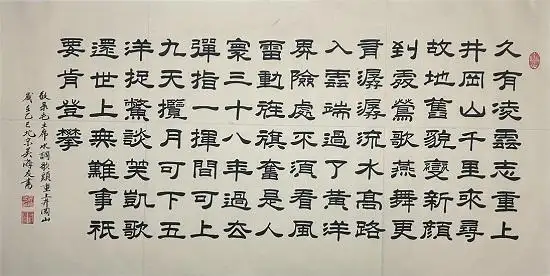 久有凌雲志重上
井岡山千里來尋
故地舊貌變新顏
到處鶯歌燕舞更
有潺潺流水高路
入雲端過了黃洋
界險處不須看風
雷動旌旗奮是人
寰三十八年過去
彈指一揮間可上
九天攬月可下五
洋捉鱉談笑凱歌
還世上無難事衹
要肯登攀
毛主席水調歌頭重上井岡山
北京吳海友書